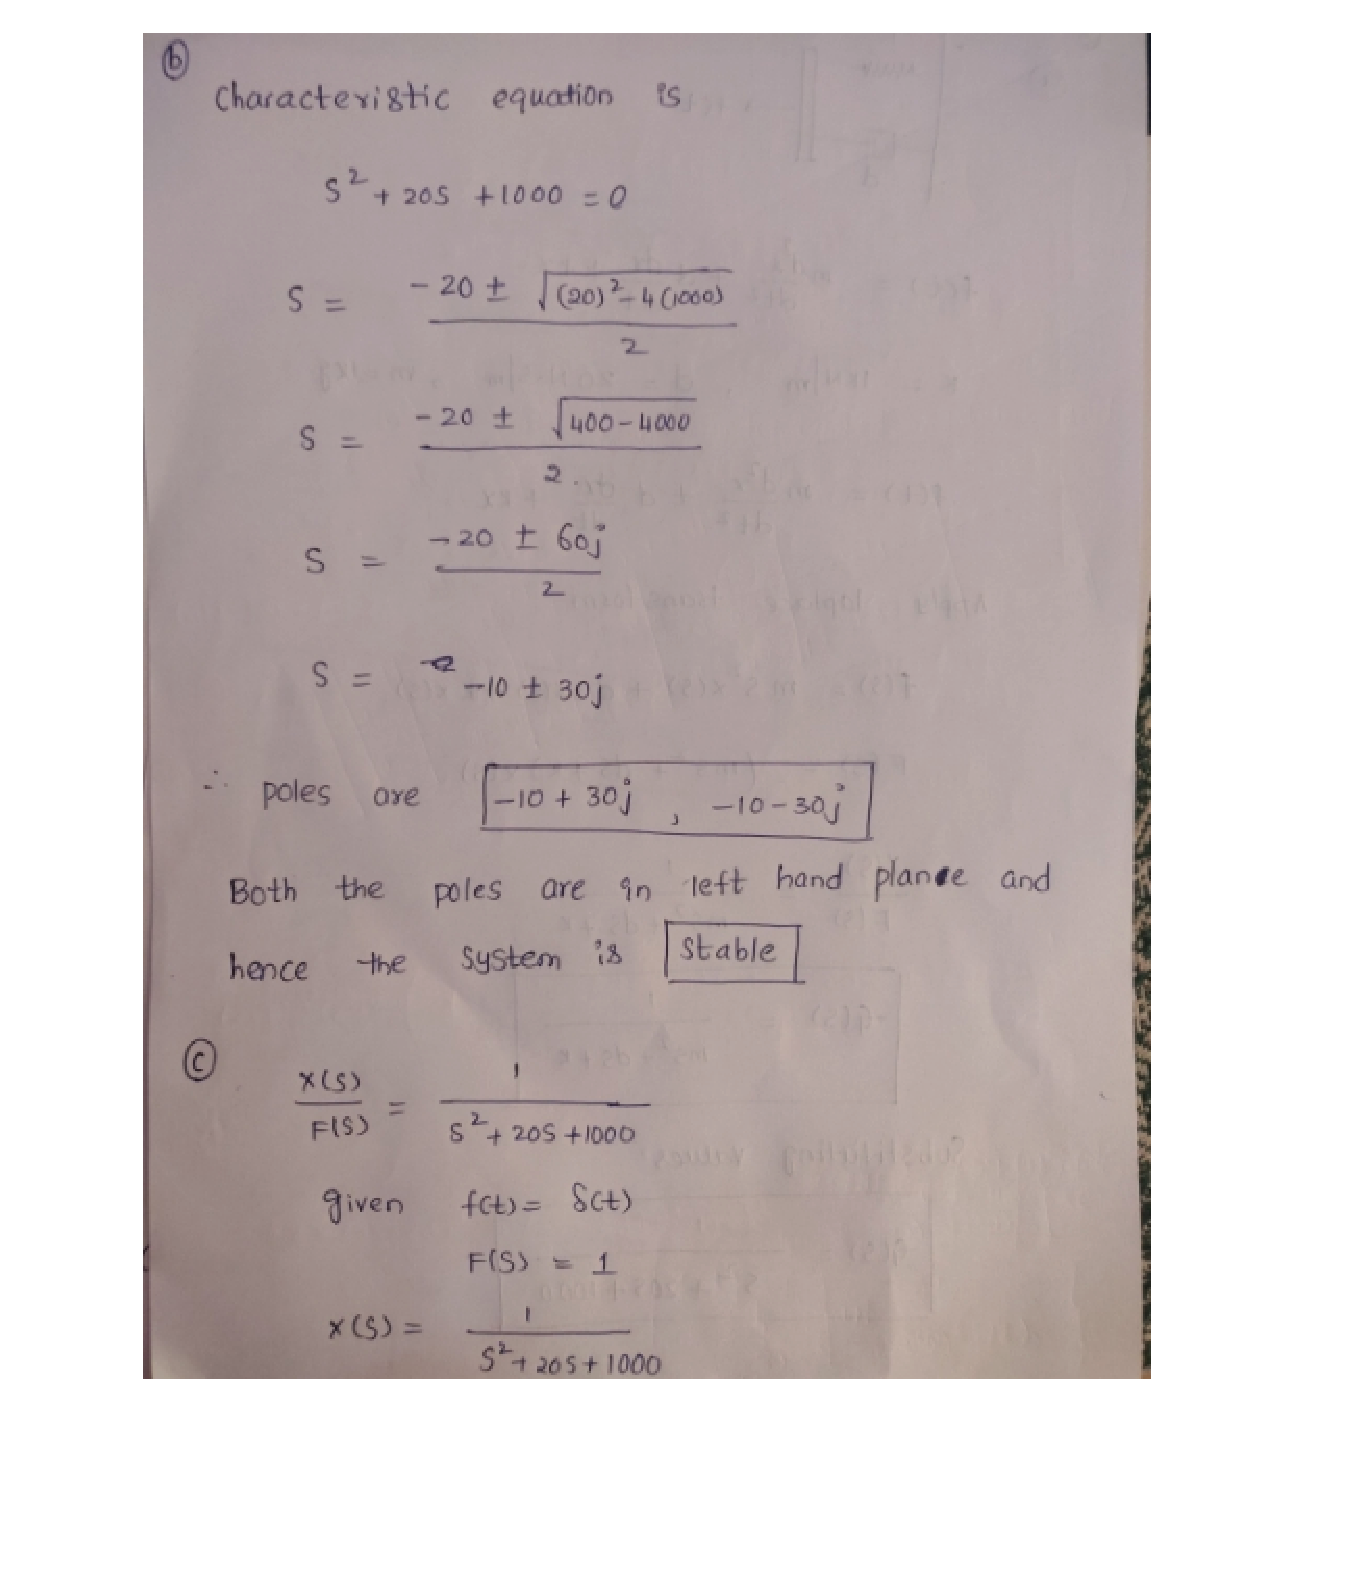 (b)
Characteristic equation is
S² + 20S + 1000 = 0
S = (-20 ± √((20)² - 4(1000))) / 2
S = (-20 ± √(400 - 4000)) / 2.
S = (-20 ± 60j) / 2
S = -10 ± 30j
∴ poles are -10 + 30j , -10 - 30j
Both the poles are in left hand plane and
hence the system is stable
(c)
X(S) / F(S) = 1 / (S² + 20S + 1000)
given f(t) = δ(t)
F(S) = 1
X(S) = 1 / (S² + 20S + 1000)